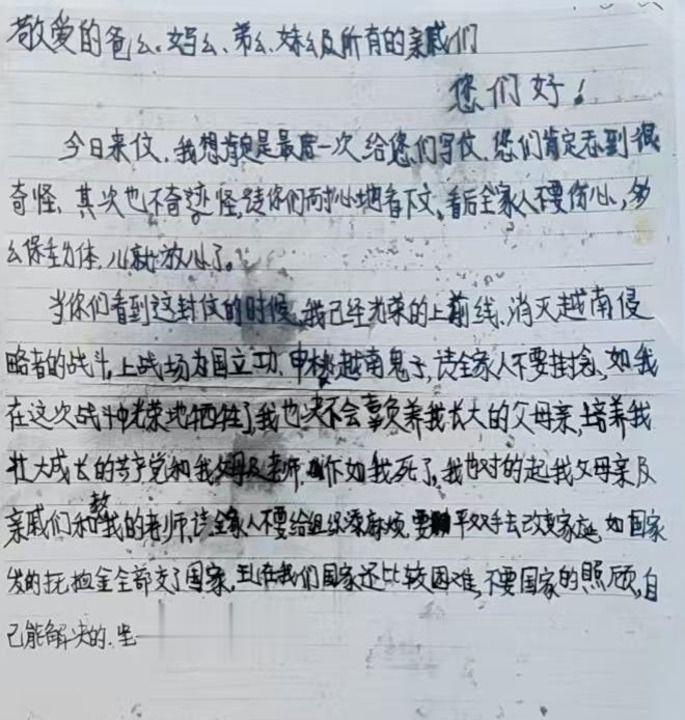 敬爱的爸么、妈么、弟么、妹么及所有的亲戚们
您们好！
今日来仪、我想肯定是最后一次给您们写仪、您们肯定看到很
奇怪、其次也不奇怪,请你们耐心地看下文、看后全家人不要伤心,多
么保重身体,儿就放心了。
当你们看到这封仪的时候,我已经光荣的上前线、消灭越南侵
略者的战斗,上战场为国立功、越南鬼子,请全家人不要挂念,如我
在这次战斗中光荣地牺牲了,我也决不会辜负养我长大的父母亲,培养我
壮大成长的共产党和我父母及老师,作如我死了,我也对的起我父母亲及
亲戚们和教我的老师,请全家人不要给组织添麻烦,要平双手去改变家庭,如国家
发的抚恤金全部交了国家,现在我们国家还比较困难,不要国家的照顾,自
己能解决的、坚